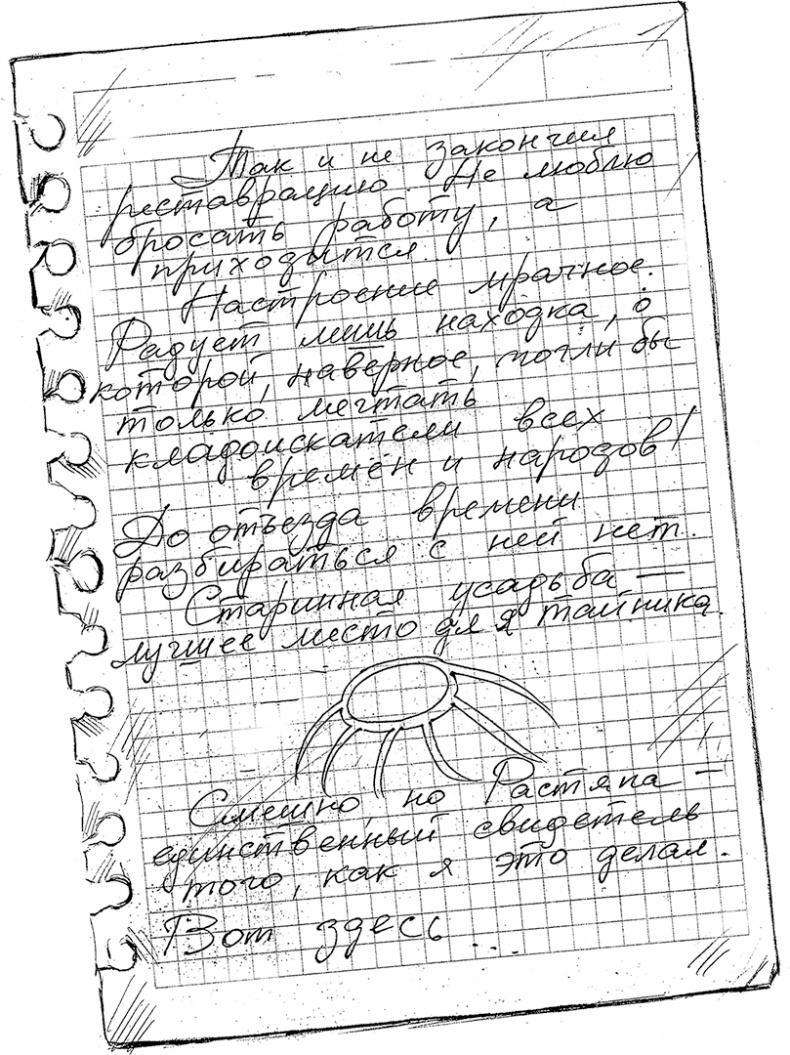 Так и не закончил
реставрацию. Не люблю
бросать работу, а
приходится.
Настроение мрачное.
Радует лишь находка, о
которой, наверное, могли бы
только мечтать
кладоискатели всех
времён и народов!
До отъезда времени
разбираться с ней нет.
Старинная усадьба —
лучшее место для тайника.
Смешно, но Растяпа —
единственный свидетель
того, как я это делал.
Вот здесь...